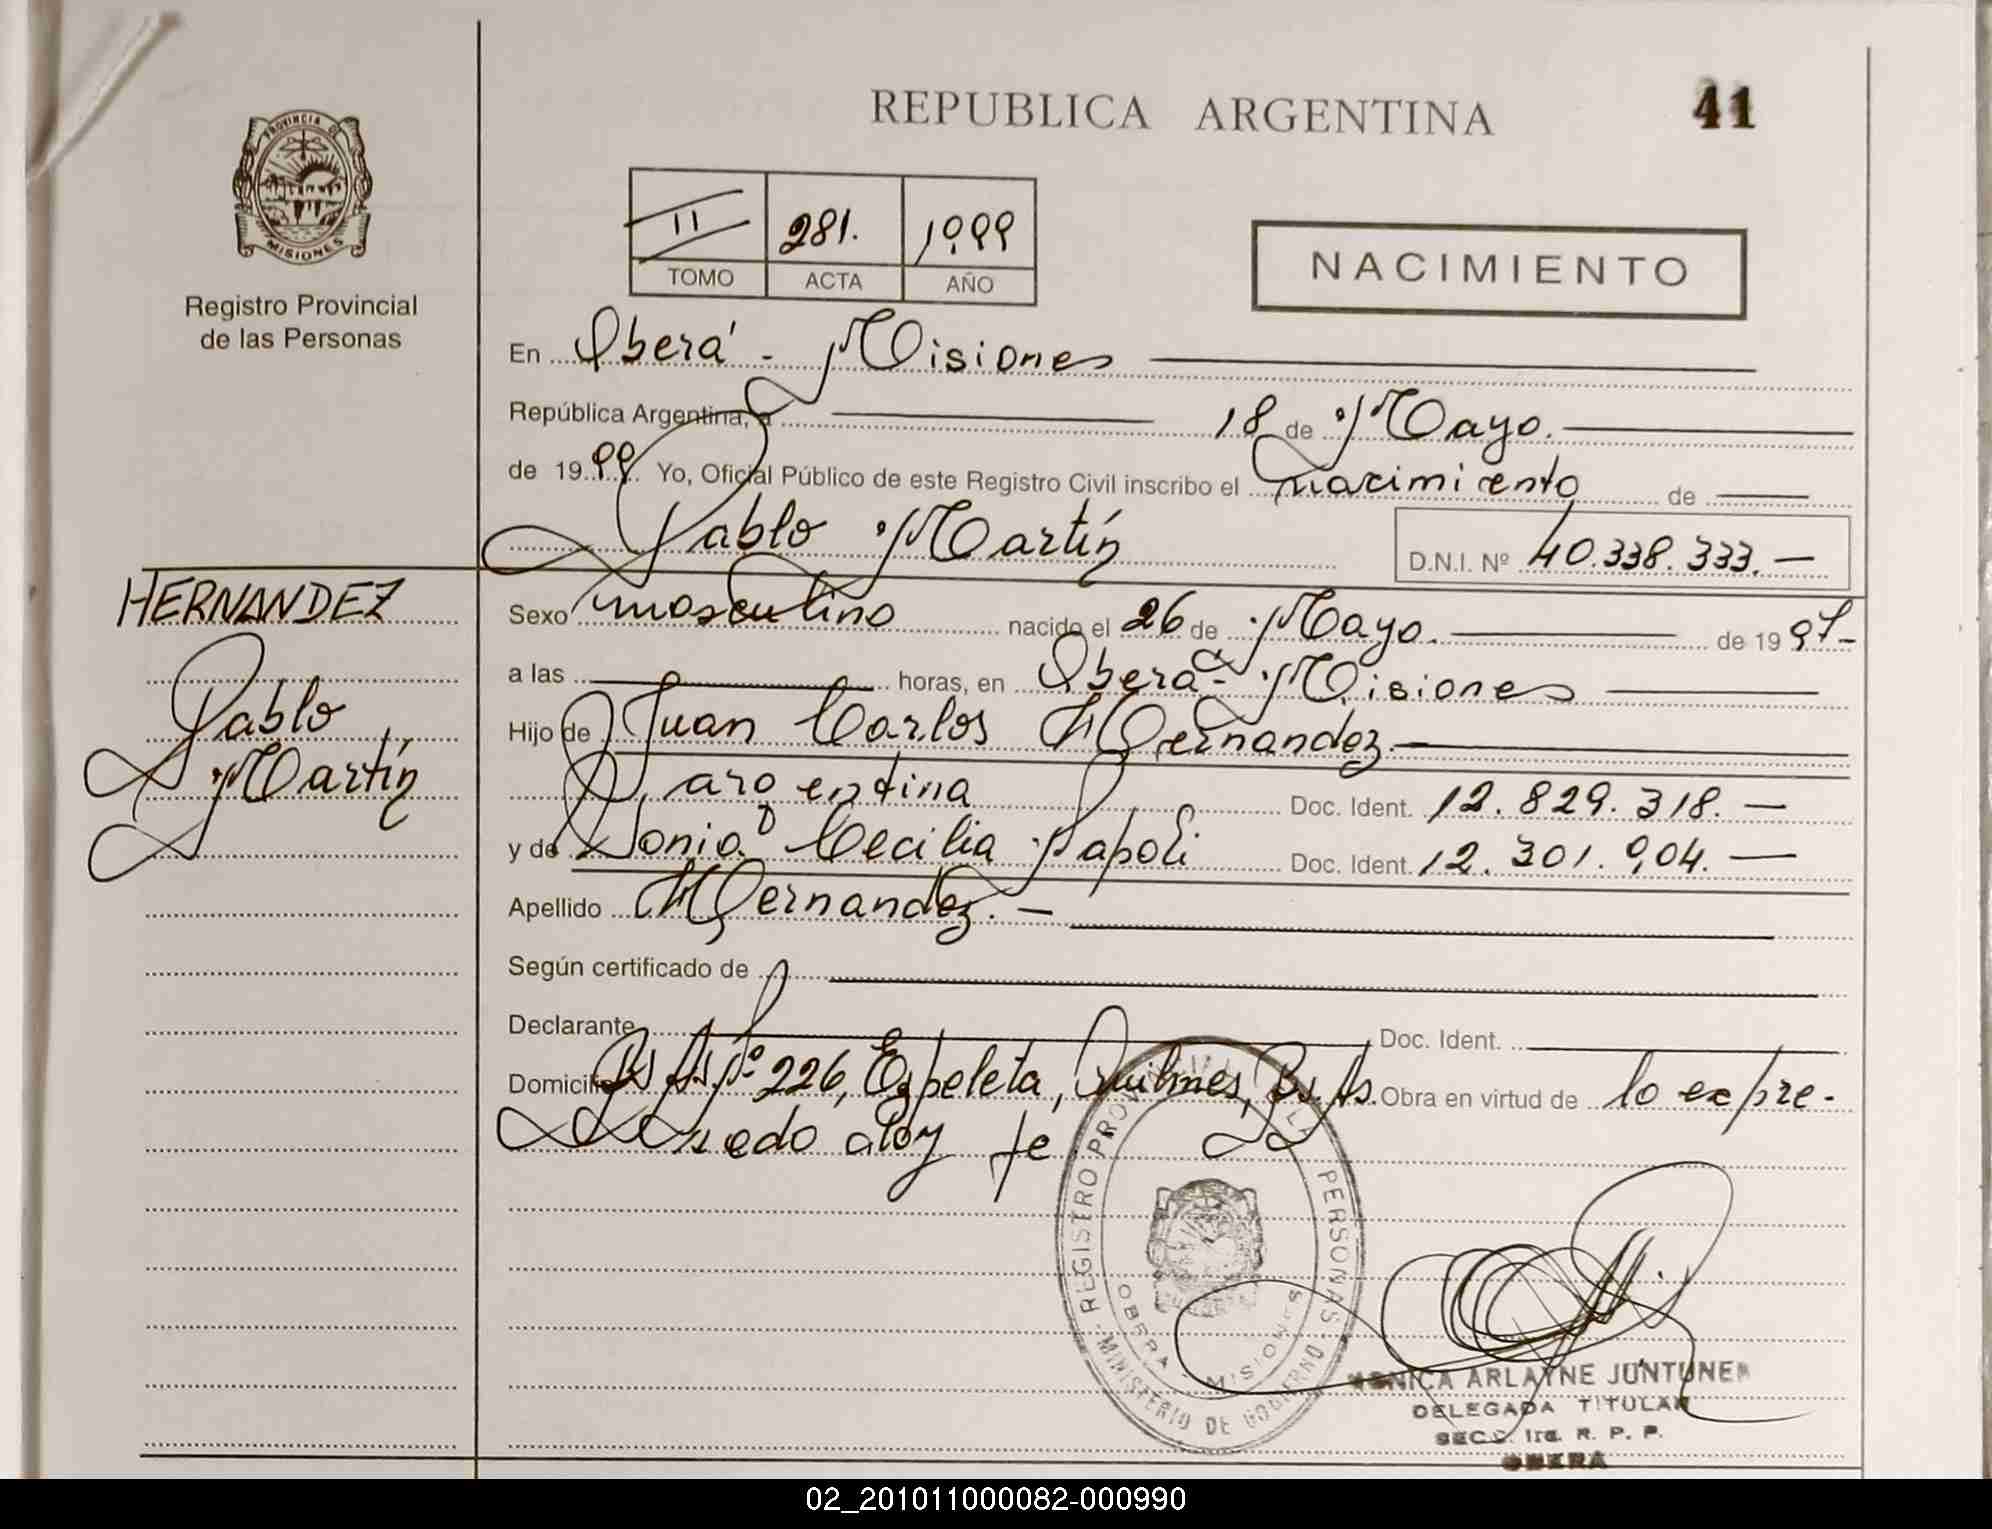 REPUBLICA ARGENTINA
41
PROVINCIA DE
MISIONES
Registro Provincial
de las Personas
II 281. 1999
TOMO ACTA AÑO
NACIMIENTO
En Oberá - Misiones
República Argentina, a 18 de Mayo.
de 1999 Yo, Oficial Público de este Registro Civil inscribo el nacimiento de
Pablo Martín D.N.I. Nº 40.338.333.-
HERNANDEZ
Pablo
Martín
Sexo masculino nacido el 26 de Mayo. de 1997-
a las horas, en Oberá - Misiones
Hijo de Juan Carlos Hernandez.
argentina Doc. Ident. 12.829.318.-
y de Sonia Cecilia Papoli Doc. Ident. 12.301.904.-
Apellido Hernandez.-
Según certificado de
Declarante Doc. Ident.
Domicilio Bs As. Nº 226, Ezpeleta, Quilmes, Bs. As. Obra en virtud de lo expre-
sado doy fe
REGISTRO PROVINCIAL DE LAS PERSONAS
MINISTERIO DE GOBIERNO
OBERA - MISIONES
MONICA ARLAYNE JUNTUNEN
DELEGADA TITULAR
SECC. 1ra. R. P. P.
OBERA
02_201011000082-000990